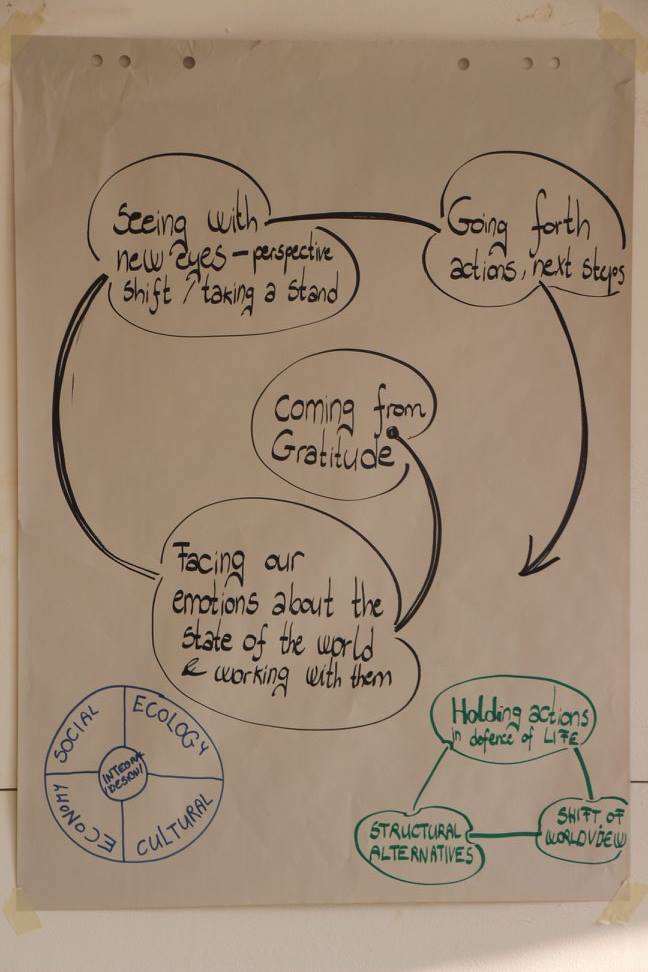 Seeing with
new eyes – perspective
shift / taking a stand
Going forth
actions, next steps
Coming from
Gratitude
Facing our
emotions about the
state of the world
& working with them
SOCIAL
ECOLOGY
ECONOMY
CULTURAL
DESIGN
Holding actions
in defence of LIFE
STRUCTURAL
ALTERNATIVES
SHIFT OF
WORLDVIEW